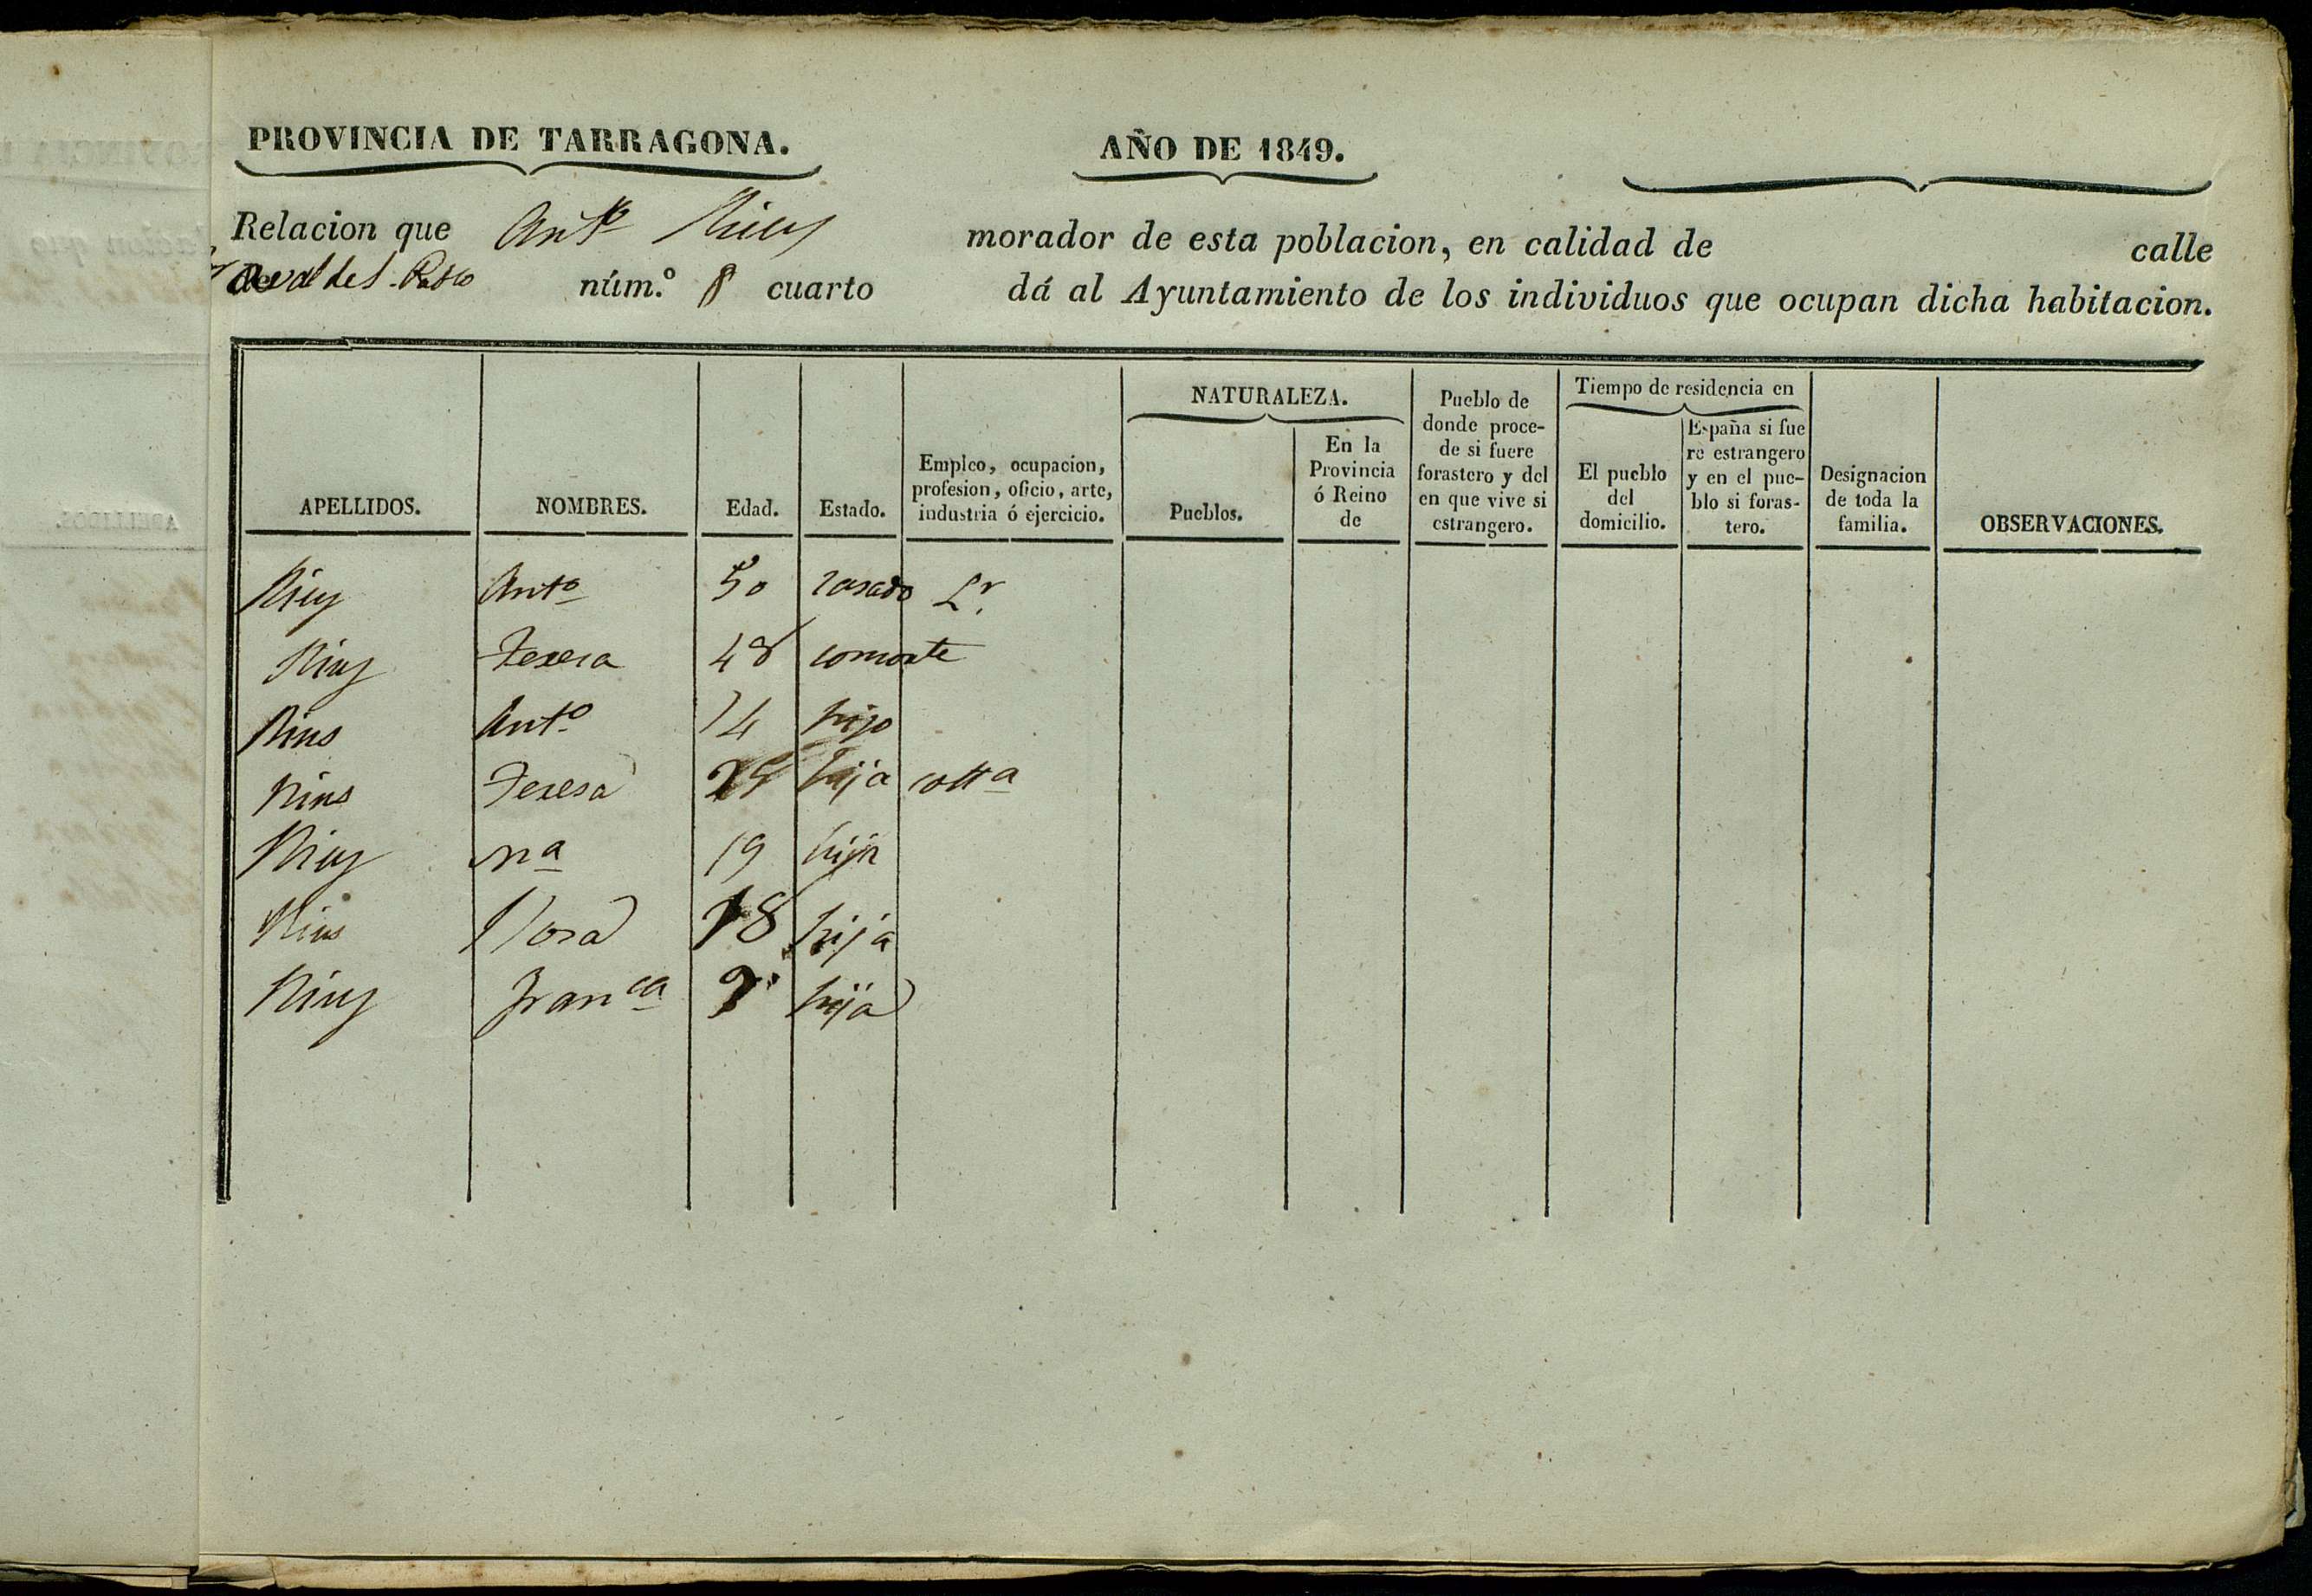 PROVINCIA DE TARRAGONA.
AÑO DE 1849.
Relacion que Antº Rius morador de esta poblacion, en calidad de calle
núm.º 8 cuarto dá al Ayuntamiento de los individuos que ocupan dicha habitacion.
APELLIDOS. NOMBRES. Edad. Estado. Empleo, ocupacion, profesion, oficio, arte, industria ó ejercicio. NATURALEZA. Pueblos. En la Provincia ó Reino de Pueblo de donde procede si fuere forastero y del en que vive si estrangero. Tiempo de residencia en El pueblo del domicilio. España si fuere estrangero y en el pueblo si forastero. Designacion de toda la familia. OBSERVACIONES.
Rius Antº 50 casado Lr.
Rius Teresa 48 consorte
Rius Antº 14 hijo
Rius Teresa hija coltª
Rius Mª 19 hija
Rius Rosa 18 hija
Rius Franca hija